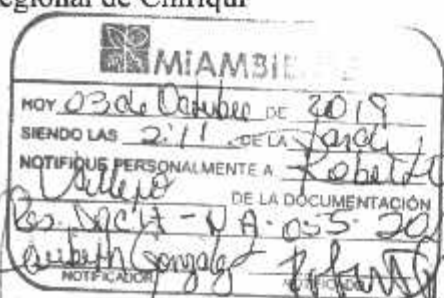 egional de Chiriquí
MiAMBIE
HOY 03 de Octubre DE 2019
SIENDO LAS 2:11 DE LA tarde
NOTIFIQUE PERSONALMENTE A Roberto
Vallejo DE LA DOCUMENTACIÓN
Res. DRCH-IA-055-20
González
NOTIFICADOR NOTIFICADO